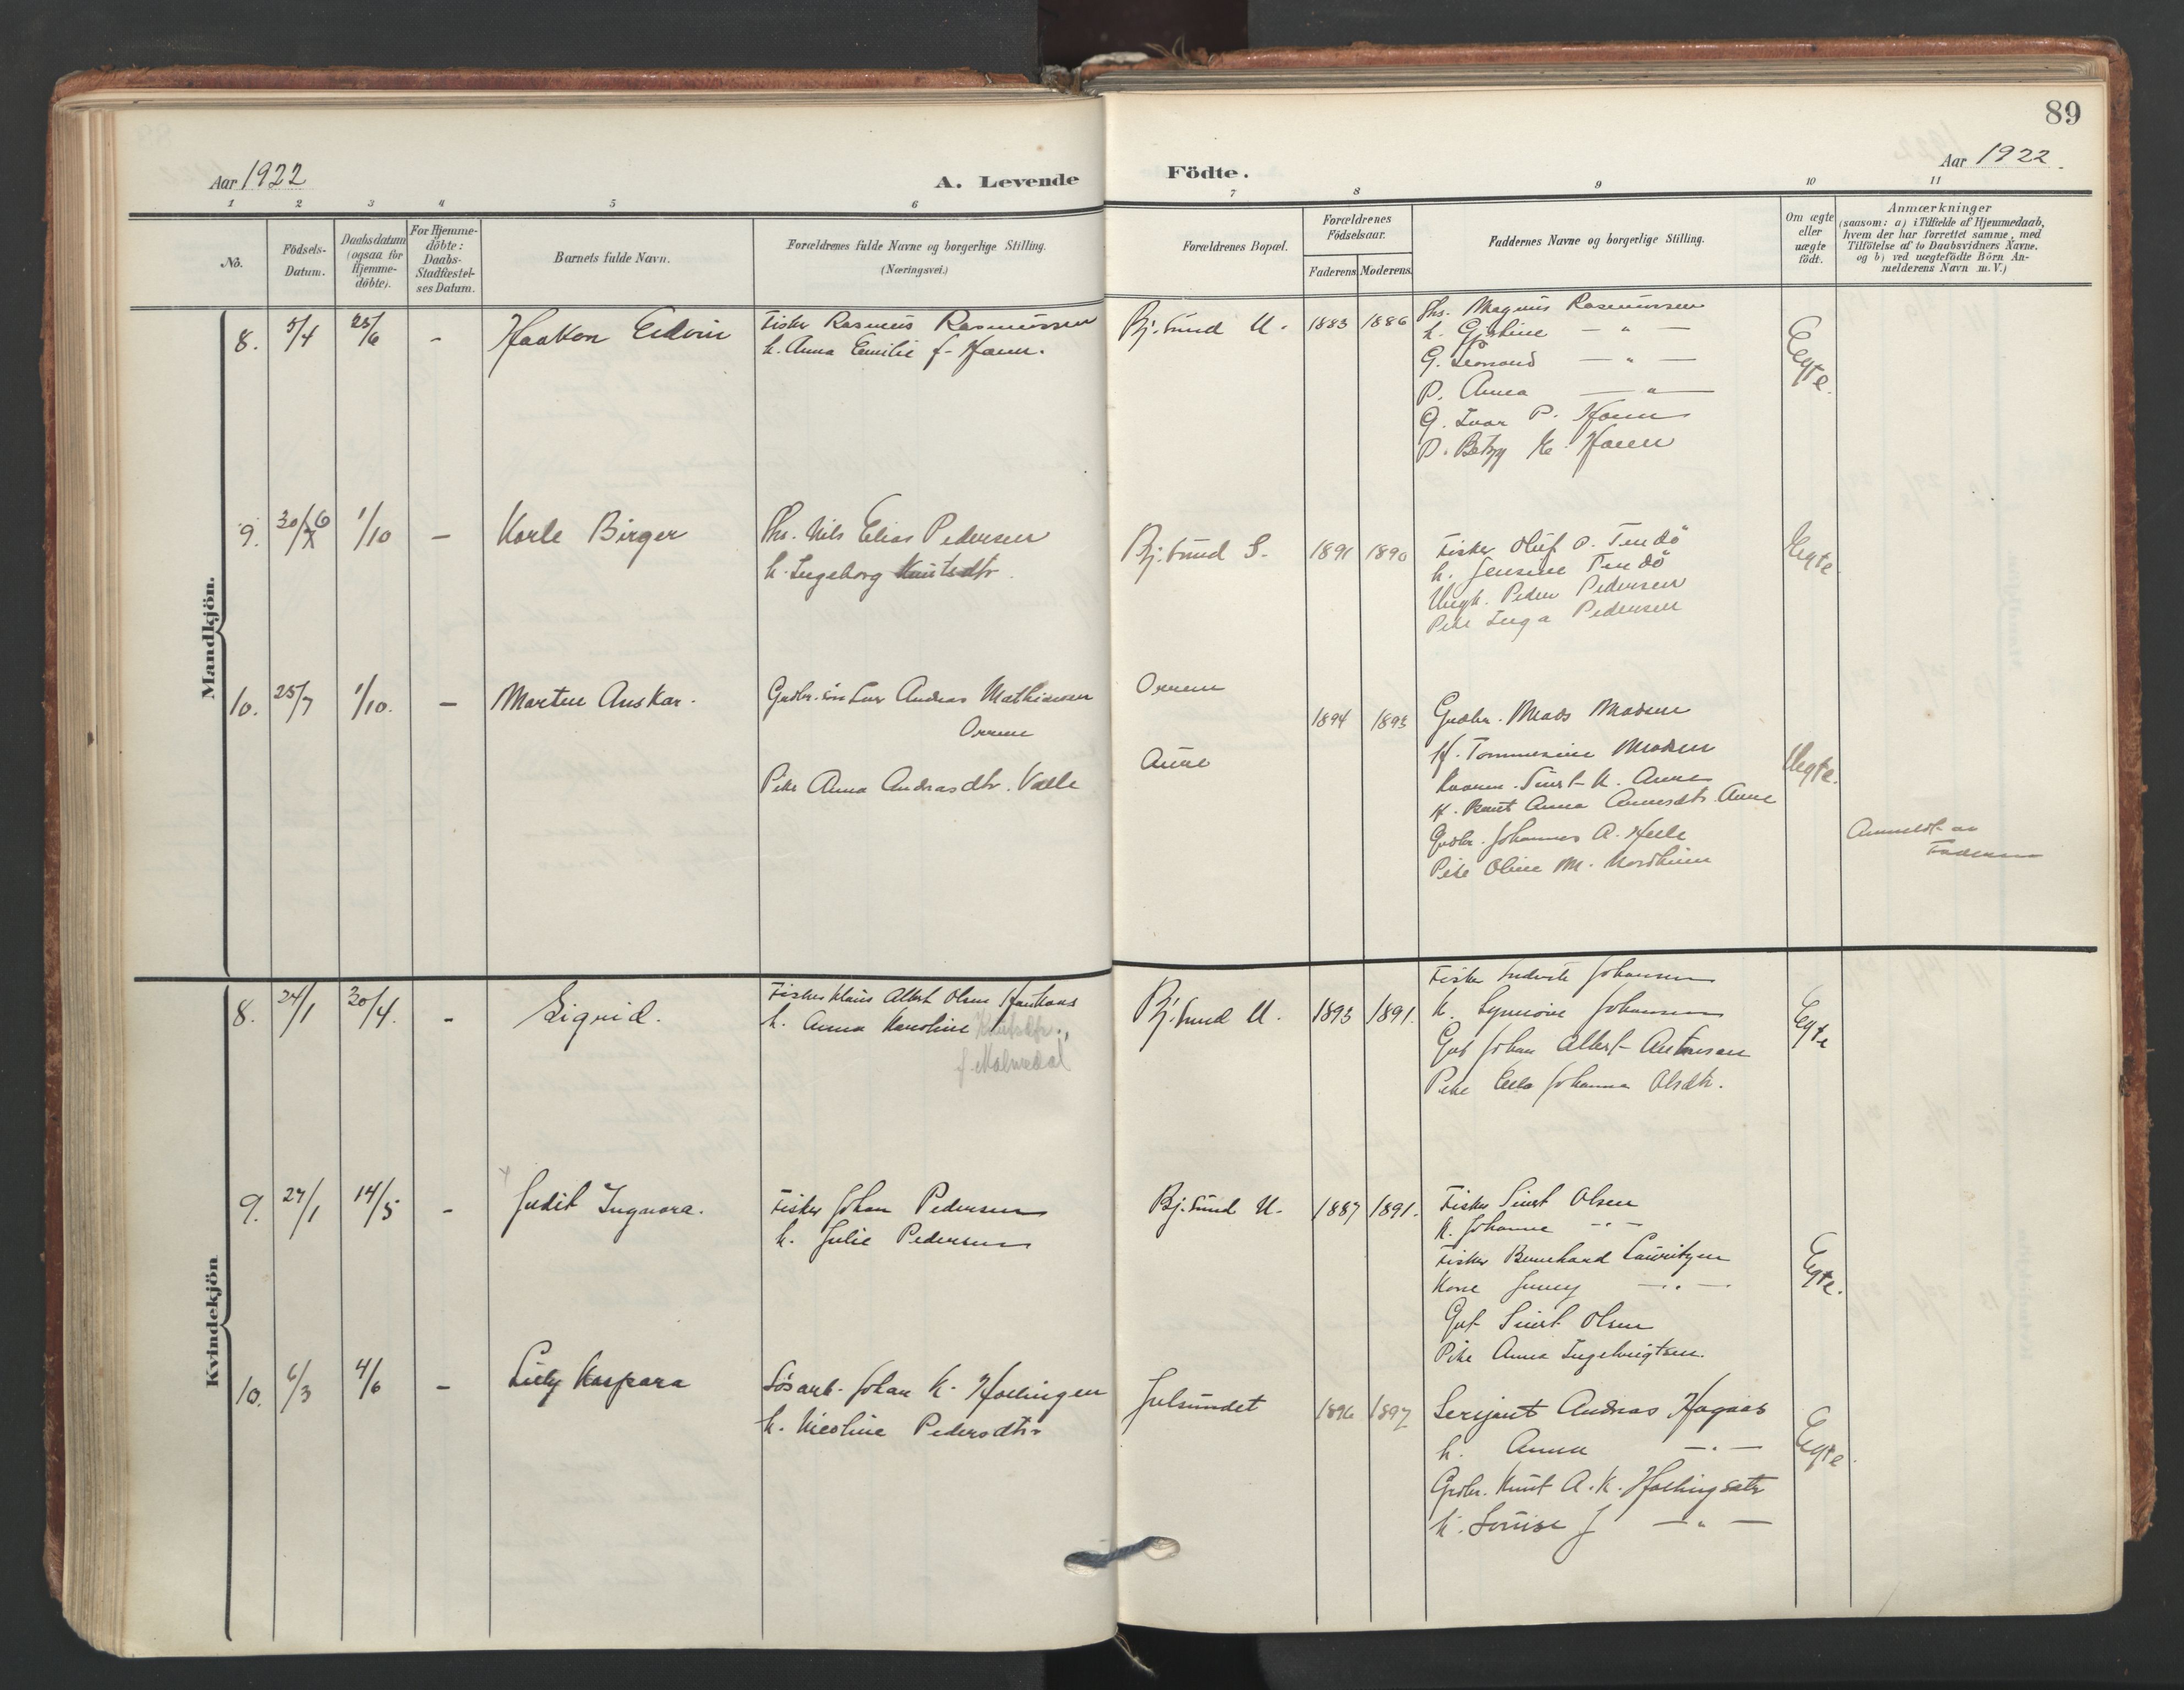 89
Aar 1922
A. Levende
Födte.
Aar 1922.
1 2 3 4 5 6 7 8 9 10 11
No.
Födsels-
Datum.
Daabsdatum
(ogsaa for
Hjemme-
döbte).
For Hjemme-
döbte:
Daabs-
Stadfæstel-
ses Datum.
Barnets fulde Navn.
Forældrenes fulde Navne og borgerlige Stilling.
(Næringsvei.)
Forældrenes Bopæl.
Forældrenes
Födselsaar.
Faderens
Moderens.
Faddernes Navne og borgerlige Stilling.
Om ægte
eller
uægte
födt.
Anmærkninger
(saasom: a) i Tilfælde af Hjemmedaab,
hvem der har forrettet samme, med
Tilföielse af to Daabsvidners Navne.
og b) ved uægtefödte Börn An-
melderens Navn m. V.)
Mandkjön.
8. 5/4 25/6 - Haakon Edvin
Fisker Rasmus Rasmussen
k. Anna Emilie f.
Bj. sund U. 1883 1886
Fhs. Magnus Rasmussen
k. Gjertine — " —
G. Leonard — " —
P. Anna — " —
G. Ivar P.
P. Betzy K.
Egte.
9. 30/6 1/10 - Karle Birger
Fhs. Nils Elias Pedersen
k. Ingeborg Knutsdtr.
Bj. sund S. 1891 1890
Fisker Oluf O. Tendö
k. Jensine Tendö
Ungk. Peder Pedersen
Pike Inga Pedersen
Egte
10. 25/7 1/10. - Marten Anskar.
Grdbr. sön Lars Andreas Mathiassen
Orrem
Pike Anna Andreasdtr. Valle
Orrem
Aure
1894 1893
Grdbr. Mads Madsen
K. Tommesine Madsen
Sivert K. Aure
K. Anna Aure
Grdbr. Johannes A. Helle
Pike Oline M. Nordheim
Uegte.
Anmeldt av
Faderen
Kvindekjön
8. 24/1 30/4. - Sigrid.
Fisker Klaus Albert Olsen
k. Anna Karoline Knutsdtr.,
f. Malmedal
Bj. sund U. 1893 1891.
Fisker Ludvik Johansen
K. Synnöve Johansen
Gut Johan Albert Antonsen
Pike Ella Johanna Olsdtr.
Egte
9. 27/1 14/5 - Judit Ingvara.
Fisker Johan Pedersen
k. Julie Pedersen
Bj. sund U. 1887 1891.
Fisker Sivert Olsen
K. Johanne - " -
Fisker Bernhard Lauritzen
Kone Jenny — " —
Gut Sivert Olsen
Pike Anna Ingebrigtsen.
Egte.
10. 6/3 4/6 - Lilly Kaspara
Lösarb. Johan K. Hollingen
k. Nicoline Pedersdtr.
Julsundet 1896 1897
Serjant Andreas Hagaas
k. Anna — " —
Grdbr. Knut A. K. Hollingsætr
k. Louise J — " —
Egte.